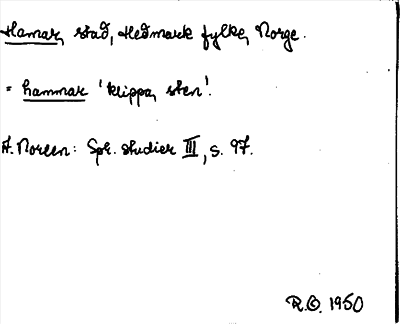 Hamar, stad, Hedmark fylke, Norge.
= hammar 'klippa, sten'.
A. Noreen: Spr. studier III, s. 97.
R.O. 1950